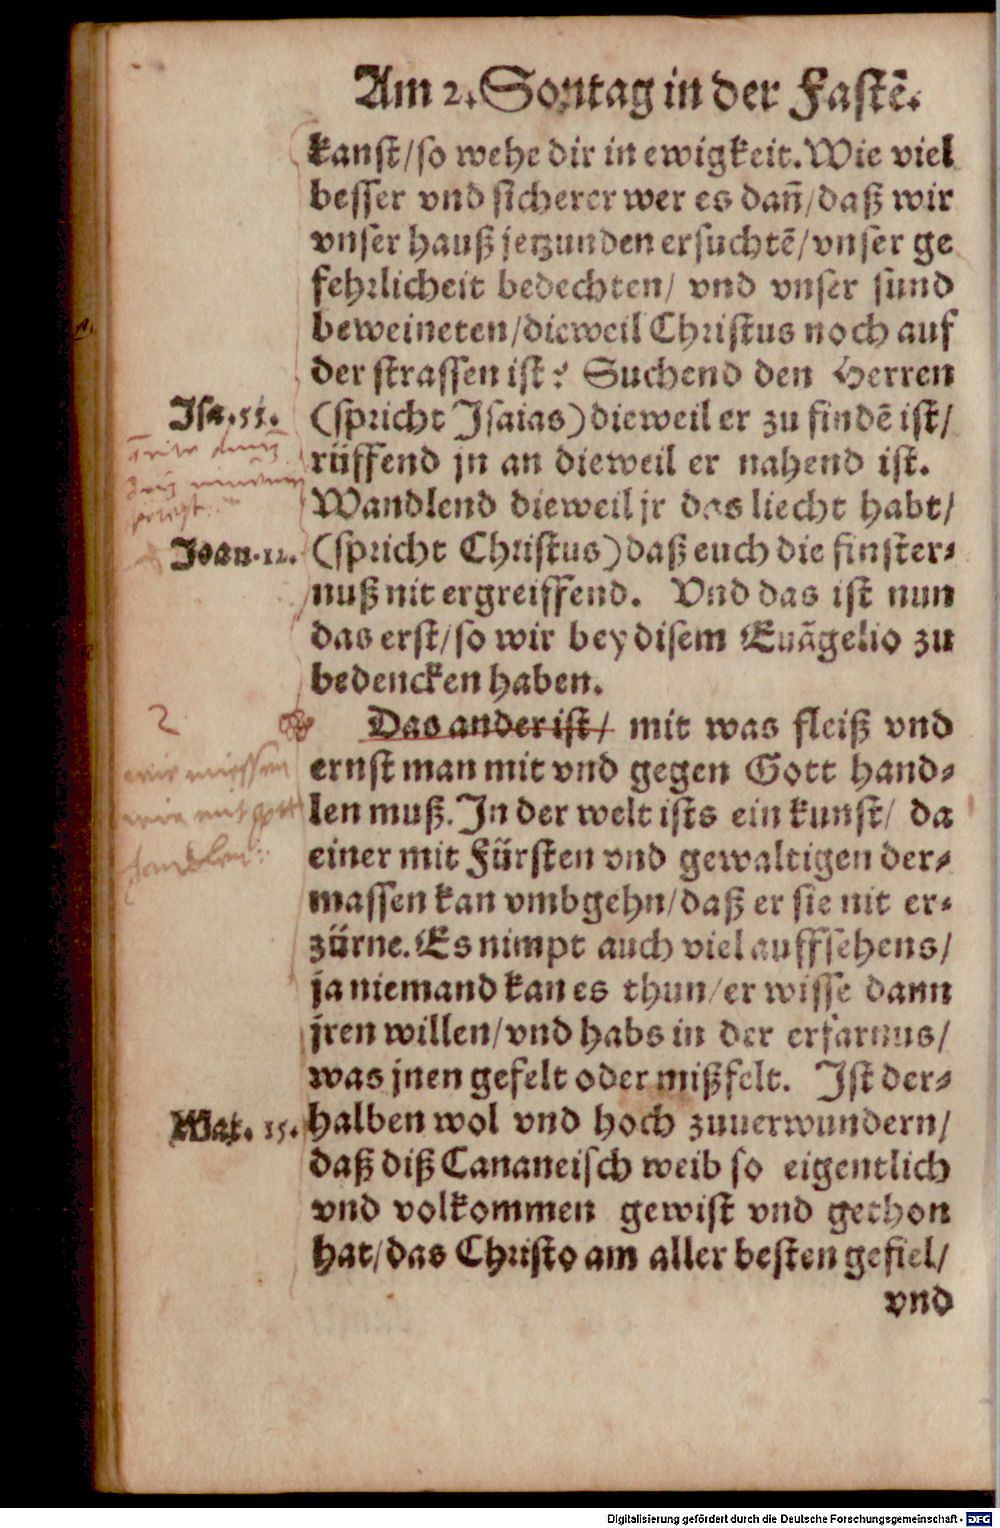 Am 2. Sontag in der Fastẽ.
kanst/so wehe dir in ewigkeit. Wie viel
besser vnd sicherer wer es dañ/daß wir
vnser hauß jetzunden ersuchtẽ/vnser ge
fehrlicheit bedechten/ vnd vnser sünd
beweineten/dieweil Christus noch auf
der strassen ist? Suchend den Herren
Isa. 55.
(spricht Isaias) dieweil er zu findẽ ist/
rüffend jn an dieweil er nahend ist.
Wandlend dieweil jr das liecht habt/
Joan. 12.
(spricht Christus) daß euch die finster-
nuß nit ergreiffend. Vnd das ist nun
das erst/so wir bey disem Euãgelio zu
bedencken haben.
2
Das ander ist/ mit was fleiß vnd
wir miessen
ernst man mit vnd gegen Gott hand-
wir mit gott
len muß. In der welt ists ein kunst/ da
handlen
einer mit Fürsten vnd gewaltigen der-
massen kan vmbgehn/daß er sie nit er-
zürne. Es nimpt auch viel auffsehens/
ja niemand kan es thun/er wisse dann
jren willen/vnd habs in der erfarnus/
was jnen gefelt oder mißfelt. Ist der-
Mat. 15.
halben wol vnd hoch zuuerwundern/
daß diß Cananeisch weib so eigentlich
vnd volkommen gewist vnd gethon
hat/das Christo am aller besten gefiel/
vnd
Digitalisierung gefördert durch die Deutsche Forschungsgemeinschaft - DFG